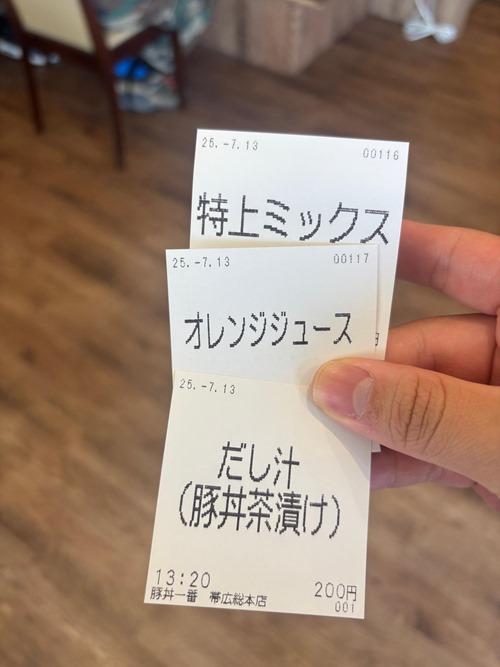 25.-7.13
00116
特上ミックス
25.-7.13
00117
オレンジジュース
円
25.-7.13
だし汁
(豚丼茶漬け)
13:20
200円
豚丼一番 帯広総本店
001